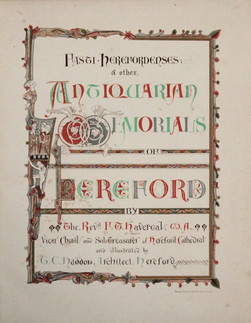 FASTI · HEREFORDENSES:
& other
ANTIQUARIAN
MEMORIALS
OF
HEREFORD
BY
The Revd. F. T. Havergal, M.A.
Vicar Choral and SubTreasurer of Hereford Cathedral
and illustrated by
T. C. Haddon, Architect, Hereford.